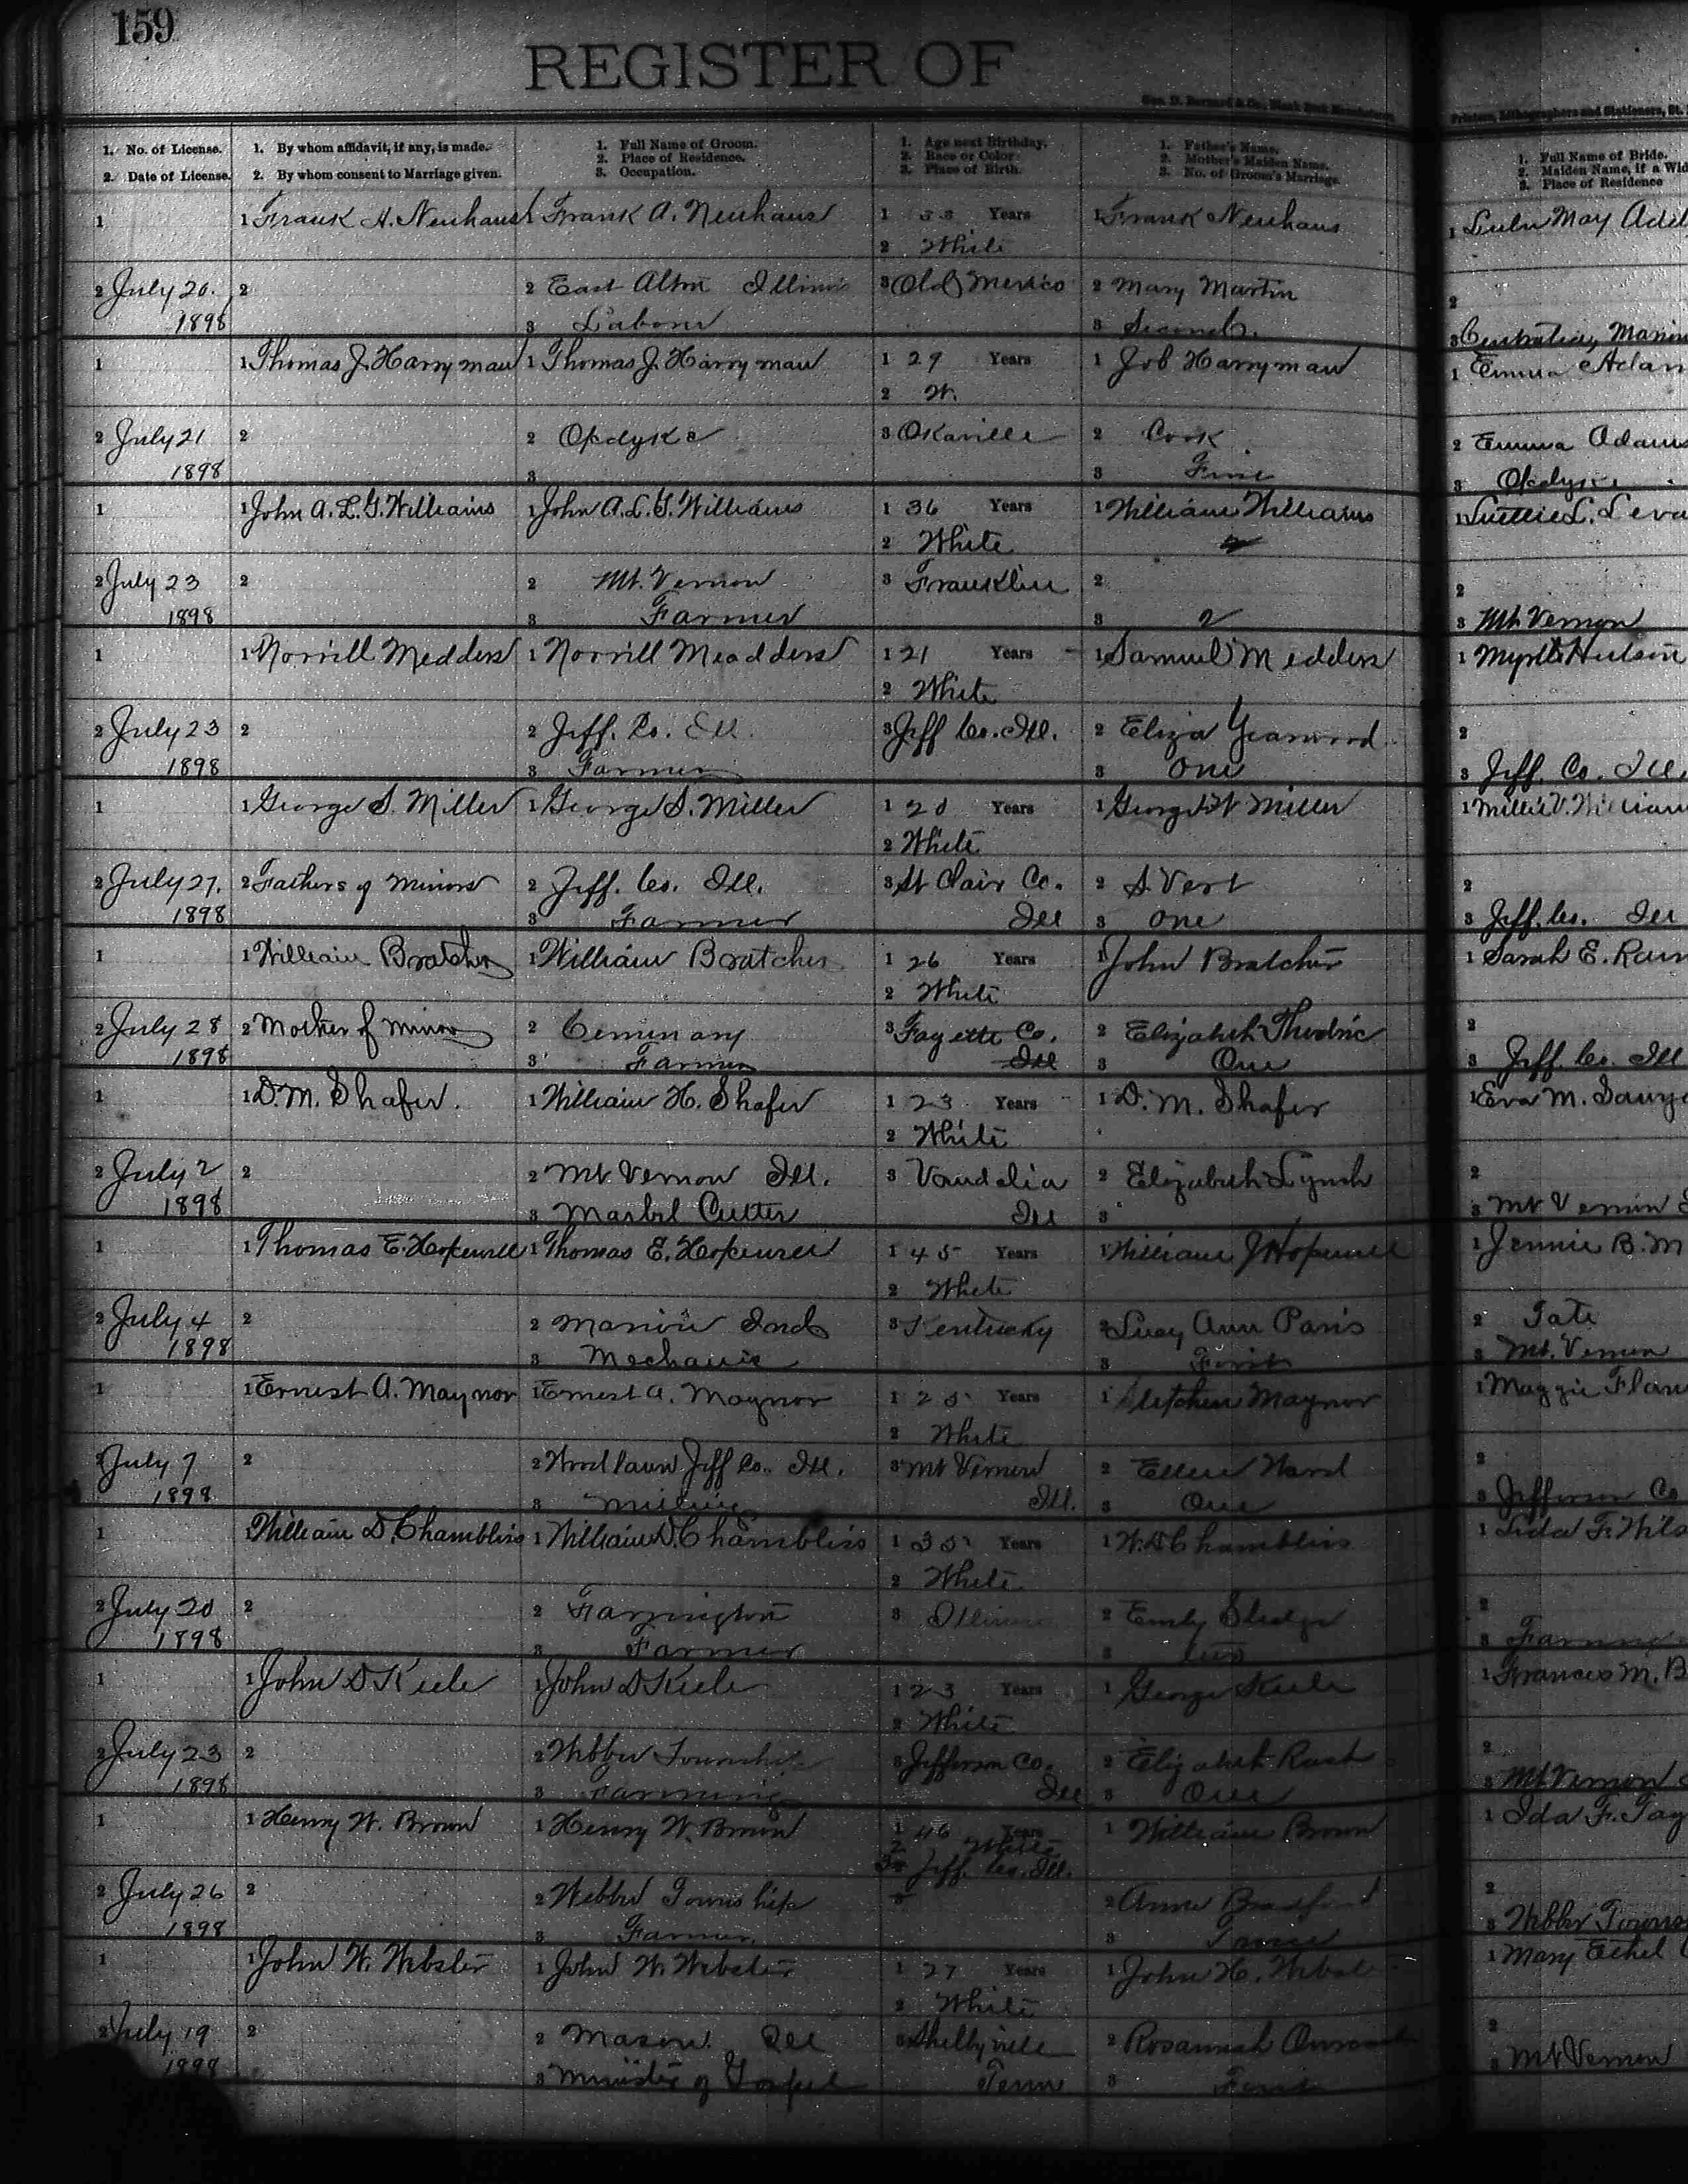 159
REGISTER OF
Geo. D. Barnard & Co., Blank Book Manufacturers,
Printers, Lithographers and Stationers, St.
1. No. of License.
2. Date of License.
1. By whom affidavit, if any, is made.
2. By whom consent to Marriage given.
1. Full Name of Groom.
2. Place of Residence.
3. Occupation.
1. Age next Birthday.
2. Race or Color.
3. Place of Birth.
1. Father's Name.
2. Mother's Maiden Name.
3. No. of Groom's Marriage.
1. Full Name of Bride.
2. Maiden Name, if a Wid
3. Place of Residence
1 1 Frank A. Neuhaus 1 Frank A. Neuhaus 1 Years 1 Frank Neuhaus 1 Lulu May Adel
2 White
2 July 20. 2 2 East Alton Illinois 3 Old Mexico 2 Mary Martin 2
1898 3 Laborer 3 Second. 3 Centralia, Marion
1 1 Thomas J. Harryman 1 Thomas J. Harryman 1 29 Years 1 Job Harryman 1 Emma Adam
2 W.
2 July 21 2 2 Opdyke 3 Okaville 2 Cook 2 Emma Adams
1898 3 3 3 Opdyke
1 1 John A. L. G. Williams 1 John A. L. G. Williams 1 36 Years 1 William Williams 1 L. Leva
2 White
2 July 23 2 2 Mt. Vernon 3 Franklin 2 2
1898 3 Farmer 3 2 3 Mt. Vernon
1 1 Norrill Medders 1 Norrill Meadders 1 21 Years 1 Samuel Medders 1 Myrtle Hutson
2 White
2 July 23 2 2 Jeff. Co. Ill. 3 Jeff Co. Ill. 2 Eliza Yearwood 2
1898 3 Farmer 3 One 3 Jeff. Co. Ill.
1 1 George S. Miller 1 George S. Miller 1 20 Years 1 George W Miller 1 Millie V. William
2 White
2 July 27. 2 Fathers of Minors 2 Jeff. Co. Ill. 3 St Clair Co. 2 S. Vert 2
1898 3 Farmer Ill 3 One 3 Jeff. Co. Ill
1 1 William Bratcher 1 William Bratcher 1 26 Years 1 John Bratcher 1 Sarah E. Rain
2 White
2 July 28 2 Mother of minor 2 Ceminary 3 Fayette Co. 2 Elizabeth 2
1898 3 Farmer Ill 3 One 3 Jeff. Co. Ill
1 1 D. M. Shafer. 1 William H. Shafer 1 23 Years 1 D. M. Shafer 1 Eva M. Sawy
2 White
2 July 2 2 2 Mt Vernon Ill. 3 Vandalia 2 Elizabeth Lynch 2
1898 3 Marbel Cutter Ill 3 3 Mt Vernon
1 1 Thomas E. Hopewell 1 Thomas E. Hopewell 1 45 Years 1 William J Hopewell 1 Jennie B. M
2 White
2 July 4 2 2 Marion Ind 3 Kentucky 2 Lucy Ann Paris 2 Tate
1898 3 Mechanic 3 First 3 Mt. Vernon
1 1 Ernest A. Maynor 1 Ernest A. Maynor 1 25 Years 1 Maynor 1 Maggie Flan
2 White
2 July 7 2 2 Woodlawn Jeff Co. Ill. 3 Mt Vernon 2 Ellen Ward 2
1898 3 Milling Ill. 3 One 3 Jefferson Co
1 1 William D. Chambliss 1 William D. Chambliss 1 35 Years 1 W. D Chambliss 1 Lida F. Wils
2 White
2 July 20 2 2 Farrington 3 Illinois 2 Emily Sledge 2
1898 3 Farmer 3 3
1 1 John D Keele 1 John D Keele 1 23 Years 1 George Keele 1 Frances M. B
2 White
2 July 23 2 2 Webber Township 3 Jefferson Co. 2 Elizabeth 2
1898 3 Farming Ill 3 One 3 Mt Vernon
1 1 Henry W. Brown 1 Henry W. Brown 1 46 Years 1 William Brown 1 Ida F. Tay
2 White
3 Jeff. Co. Ill.
2 July 26 2 2 Webber Township 3 2 Anna Bradford 2
1898 3 Farmer. 3 Twice 3 Webber Towns
1 1 John W. Webster 1 John W. Webster 1 27 Years 1 John H. Webst 1 Mary Ethel
2 White
2 July 19 2 2 Mason Ill 3 Shelbyville 2 Rosannah 2
1898 3 Minister of Gospel Tenn 3 First 3 Mt Vernon